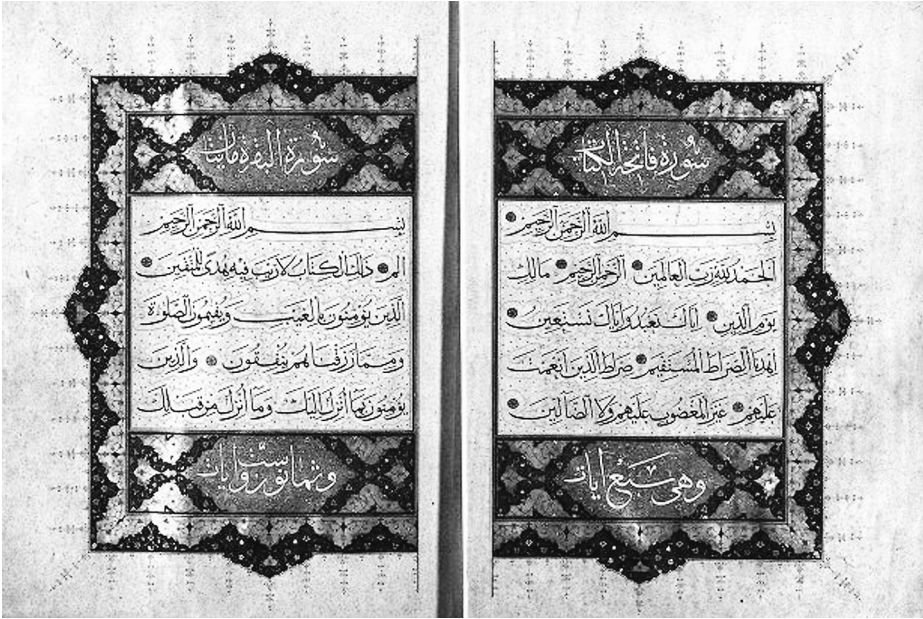 سورة فاتحة الكتاب
بسم الله الرحمن الرحيم
الحمد لله رب العالمين الرحمن الرحيم مالك
يوم الدين اياك نعبد واياك نستعين
اهدنا الصراط المستقيم صراط الذين انعمت
عليهم غير المغضوب عليهم ولا الضالين
وهي سبع ايات
سورة البقرة مائتان
بسم الله الرحمن الرحيم
الم ذلك الكتاب لا ريب فيه هدى للمتقين
الذين يؤمنون بالغيب ويقيمون الصلوة
ومما رزقناهم ينفقون والذين
يؤمنون بما انزل اليك وما انزل من قبلك
وثمانون وست ايات